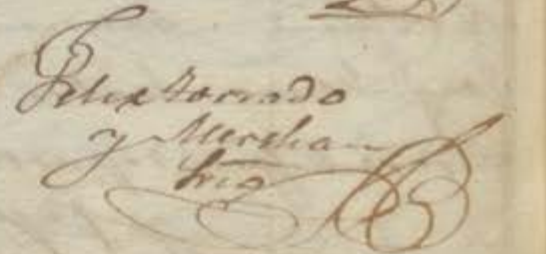 Felix Forrado
y Merchan